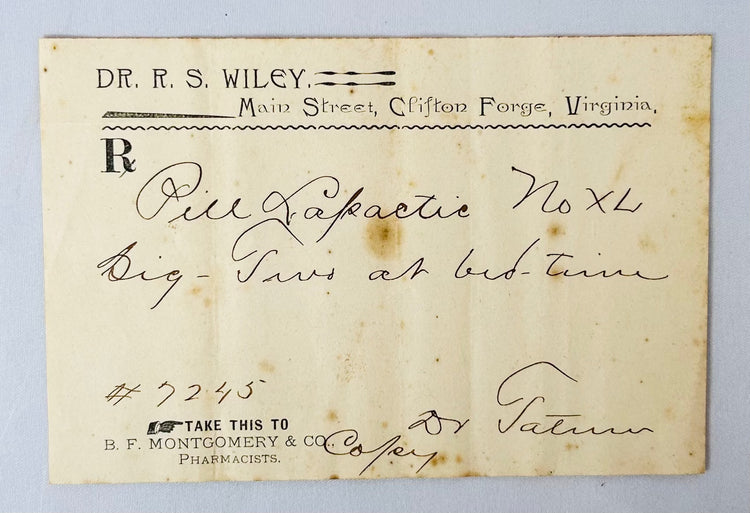 DR. R. S. WILEY.
Main Street, Clifton Forge, Virginia.
℞
Pill Lapactic No XL
Sig - Two at bed-time
# 7245
TAKE THIS TO
B. F. MONTGOMERY & CO.,
PHARMACISTS.
Copy
Dr Tatum